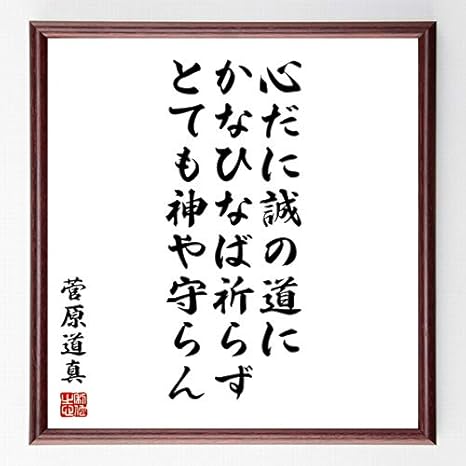 心だに誠の道に
かなひなば祈らず
とても神や守らん
菅原道真